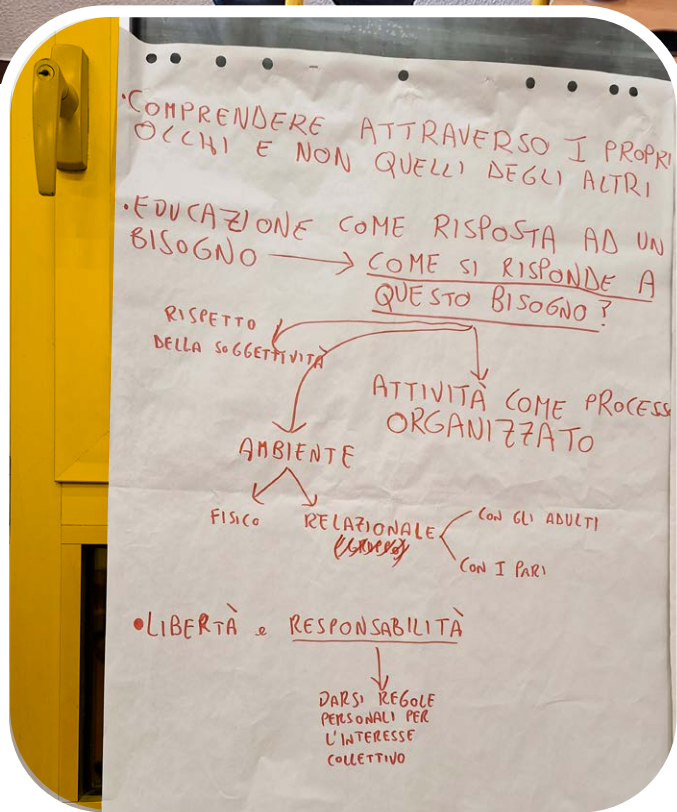 •COMPRENDERE ATTRAVERSO I PROPRI
OCCHI E NON QUELLI DEGLI ALTRI
•EDUCAZIONE COME RISPOSTA AD UN
BISOGNO → COME SI RISPONDE A
QUESTO BISOGNO?
RISPETTO
DELLA SOGGETTIVITÀ
ATTIVITÀ COME PROCESS
ORGANIZZATO
AMBIENTE
FISICO
RELAZIONALE
CON GLI ADULTI
CON I PARI
•LIBERTÀ e RESPONSABILITÀ
DARSI REGOLE
PERSONALI PER
L'INTERESSE
COLLETTIVO